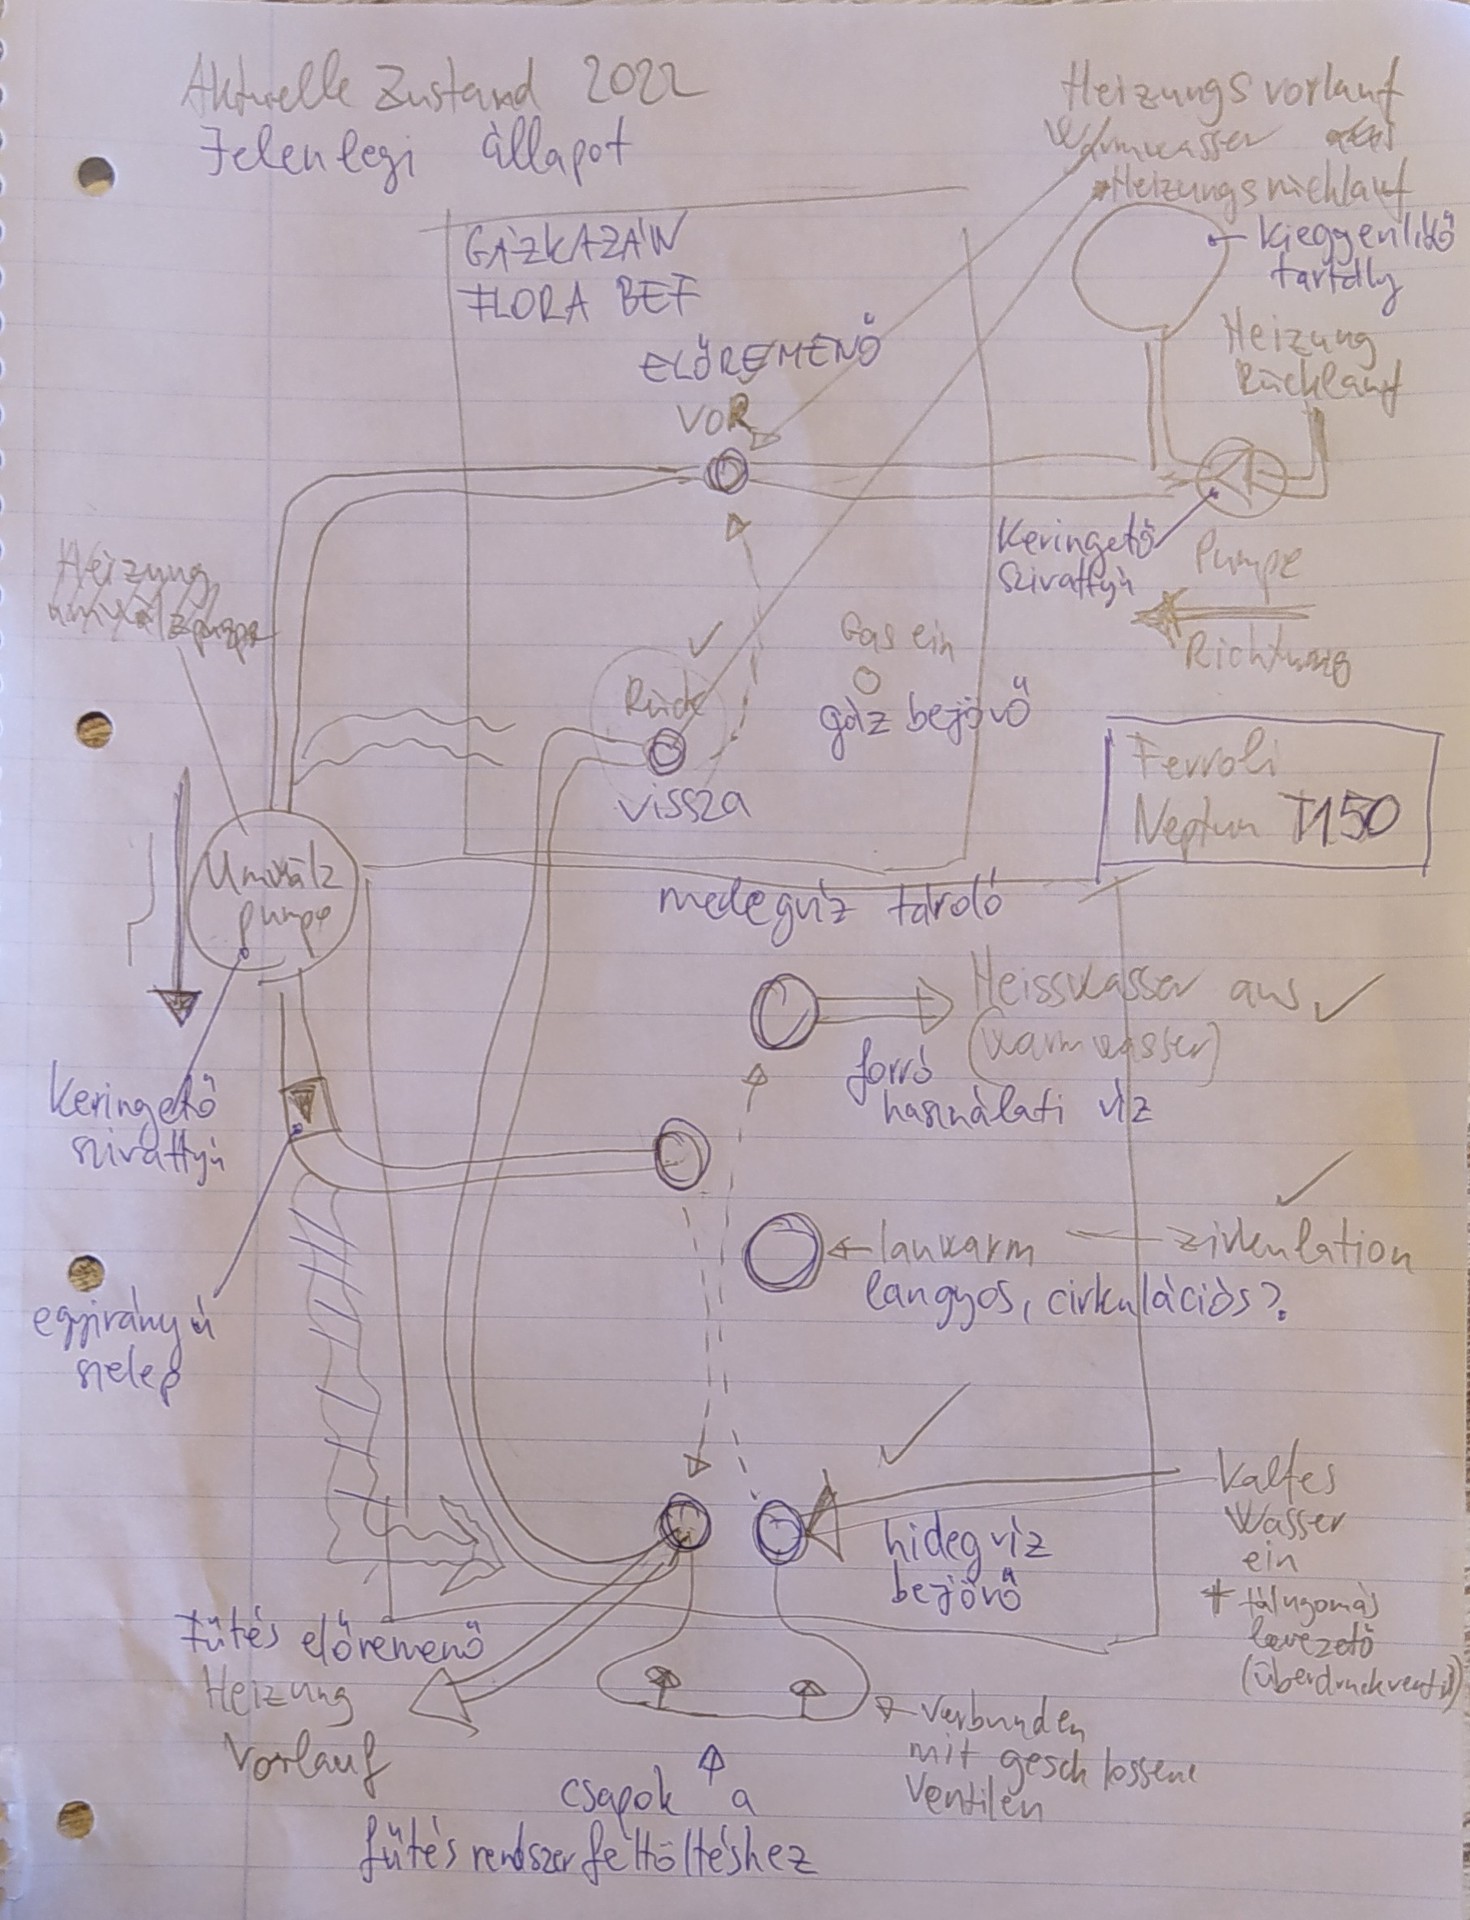 Aktuelle Zustand 2022
Jelenlegi állapot
Heizungsvorlauf
Warmwasser
Heizungsrücklauf
Kieggenlítő
tartály
GÁZKAZÁN
FLORA BEF
ELŐREMENŐ
VOR
Heizung
Rücklauf
Keringető
szivattyú
Pumpe
Richtung
Heizung
Gas ein
gáz bejövő
Rück
vissza
Ferroli
Neptun T150
Umwälz
pumpe
melegvíz tároló
Heisswasser aus
(warmwasser)
forró
használati víz
Keringető
szivattyú
lauwarm — zirkulation
langyos, cirkulációs?
egyirányú
szelep
Kaltes
Wasser
ein
+ túlnyomás
levezető
(überdruckventil)
hidegvíz
bejövő
Fűtés előremenő
Heizung
Vorlauf
Verbunden
mit geschlossene
Ventilen
csapok a
fűtés rendszer feltöltéshez